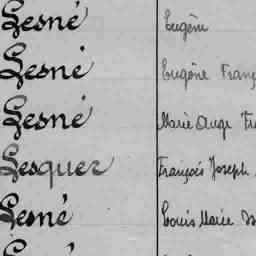 Lesné Eugène
Lesné Eugène Franç
Lesné Marie Ange Fr
Lesquer François Joseph
Lesné Louis Marie